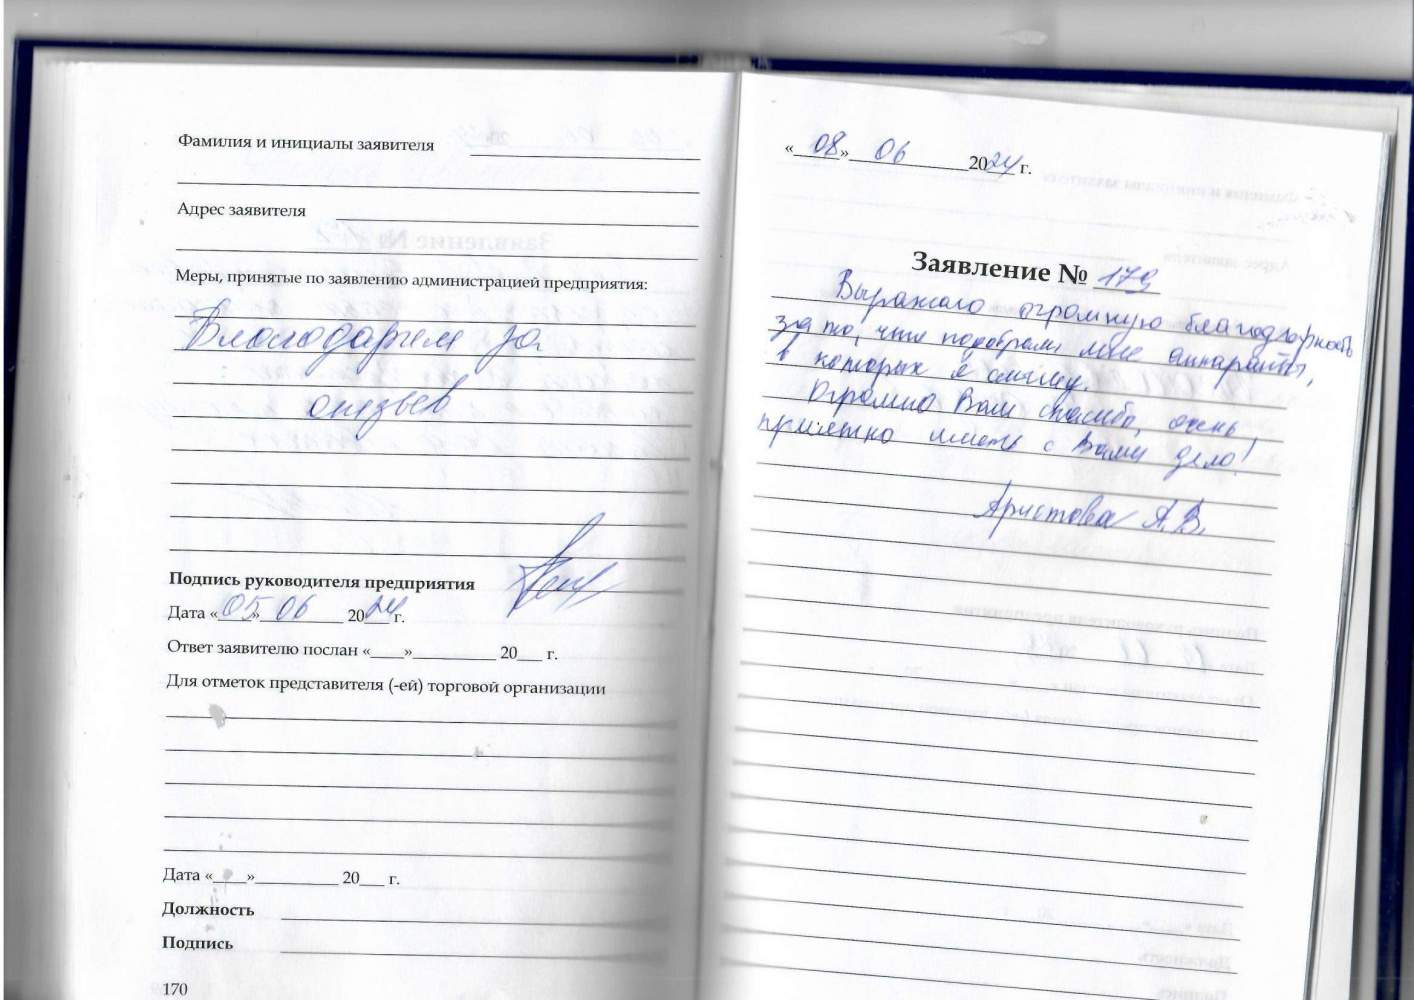 Фамилия и инициалы заявителя
Адрес заявителя
Меры, принятые по заявлению администрацией предприятия:
Благодарим за
отзыв
Подпись руководителя предприятия
Дата «05» 06 2024 г.
Ответ заявителю послан «____»__________ 20___ г.
Для отметок представителя (-ей) торговой организации
Дата «____»__________ 20___ г.
Должность
Подпись
170
«08» 06 2024 г.
Заявление № 179
Выражаю огромную благодарность
за то, что подобрали мне аппараты,
в которых я слышу.
Огромно Вам спасибо, очень
приятно иметь с Вами дело!
Аристова А.В.